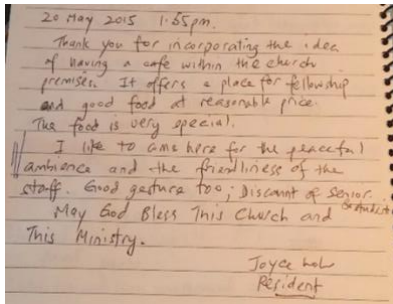 20 May 2015 1.55pm.
Thank you for incorporating the idea
of having a cafe within the church
premises. It offers a place for fellowship
and good food at reasonable price.
The food is very special.
I like to come here for the peaceful
ambience and the friendliness of the
staff. Good gesture too; Discount of Senior.
& students
May God Bless This Church and
This Ministry.
Joyce
Resident